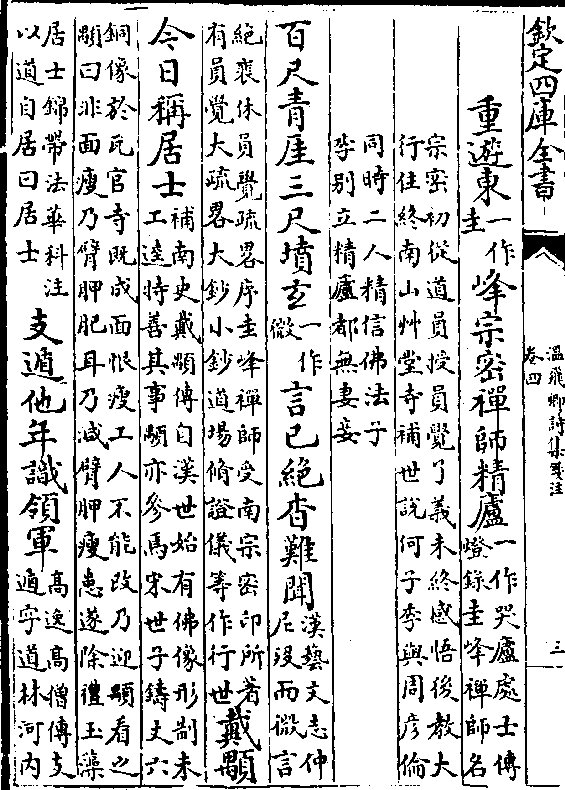 欽定四庫全書
溫飛卿詩集箋注
卷四
三
重遊東一作圭峰宗密禪師精廬一作哭廬處士傳燈錄圭峰禪師名
宗密初從道員授員覺了義未終感悟後教大
行住終南山艸堂寺補世說何子季與周彥倫
同時二人精信佛法子
季別立精廬都無妻妾
百尺青厓三尺墳玄一作微言已絕杳難聞漢藝文志仲尼沒而微言
絕裴休員覺疏畧序圭峰禪師受南宗密印所著
有員覺大疏畧大鈔小鈔道場脩證儀等作行世戴顒
今日稱居士補南史戴顒傳自漢世始有佛像形制未工逵特善其事顒亦參焉宋世子鑄丈六
銅像於瓦官寺既成面恨瘦工人不能改乃迎顒看之
顒曰非面瘦乃臂胛肥耳乃減臂胛瘦患遂除禮玉藻
居士錦帶法華科注以道自居曰居士支遁他年識領軍高逸高僧傳支遁字道林河內